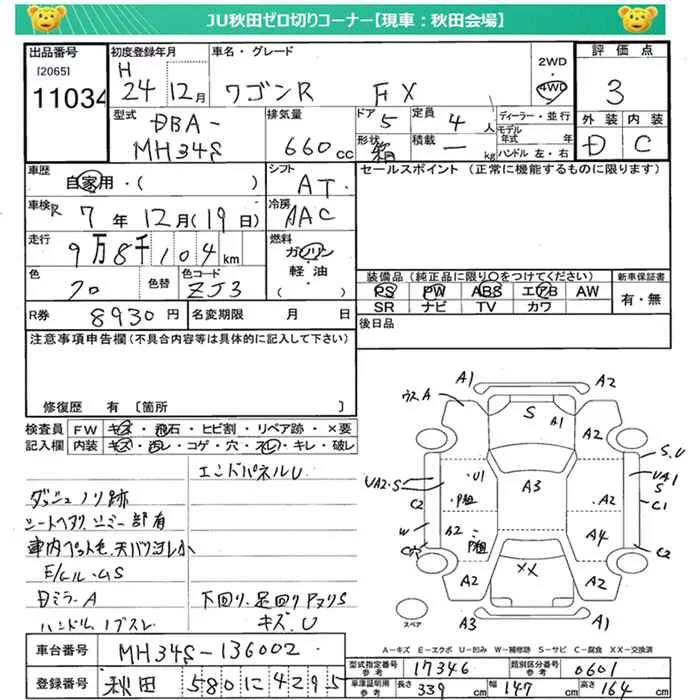 JU秋田ゼロ切りコーナー【現車：秋田会場】
出品番号 初度登録年月 車名・グレード 2WD 評価点
[2065] H 4WD 3
11034 24 12月 ワゴンR FX
型式 排気量 ドア 定員 ディーラー・並行 外装 内装
DBA- 5 4人 モデル年式 年 D C
MH34S 660cc 形状 箱 積載 ー kg ハンドル 左・右
車歴 シフト セールスポイント（正常に機能するものに限ります）
自家用・（ ） AT
車検 R7年12月(19日) 冷房 AAC
走行 燃料
9万8千104km ガソリン
軽油
( )
色 色替 色コード 装備品（純正品に限り○をつけてください） 新車保証書
クロ ZJ3 PS PW ABS エアB AW 有・無
SR ナビ TV カワ
R券 8930円 名変期限 月 日 後日品
注意事項申告欄（不具合内容等は具体的に記入して下さい）
修復歴 有 〔箇所 〕
検査員 FW キズ・飛石・ヒビ割・リペア跡・×要
記入欄 内装 キズ・汚レ・コゲ・穴・スレ・キレ・破レ
エンドパネルU
ダッシュノリ跡
車内ペット毛
E/Gル.サS
日ミラ-A 下回り.足回りアカサリS
キズ.U
A1 A2
ウスA S A1 A2
S.U
UA2・S ・U1 A3 UA1
S
C2 ・P粗 A2 C1
W A2 ・P粗 A4
C穴 C2
A2 XX A2
A3 A1
スペア
A－キズ E－エクボ U－凹み W－補修跡 S－サビ C－腐食 XX－交換済
車台番号 MH34S-136002 型式指定番号 参考 17346 類別区分番号 参考 0601
登録番号 秋田 580 に 4295 車庫証明用 参考 長さ 339cm 幅 147cm 高さ 164cm